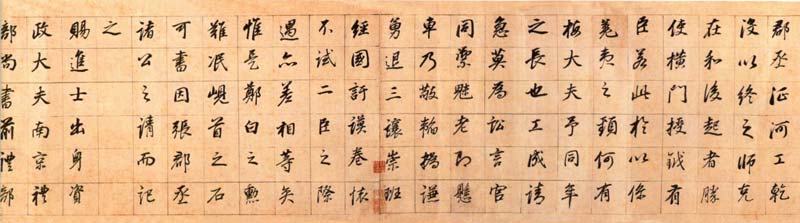 郡丞征河工乾
没以終之師克
在和後起者勝
使橫門授鉞有
臣若此於以係
羌夷之頸何有
梅大夫予同年
之長也工成請
急莫為訟言官
同栗魁老即懸
車乃敬輪撝謙
勇退三讓崇班
經國訏謨卷懷
不試二臣之際
遇亦差相等矣
惟是鄭白之勲
難泯峴首之石
可書因張郡丞
諸公之請而記
之
賜進士出身資
政大夫南京禮
部尚書前禮部